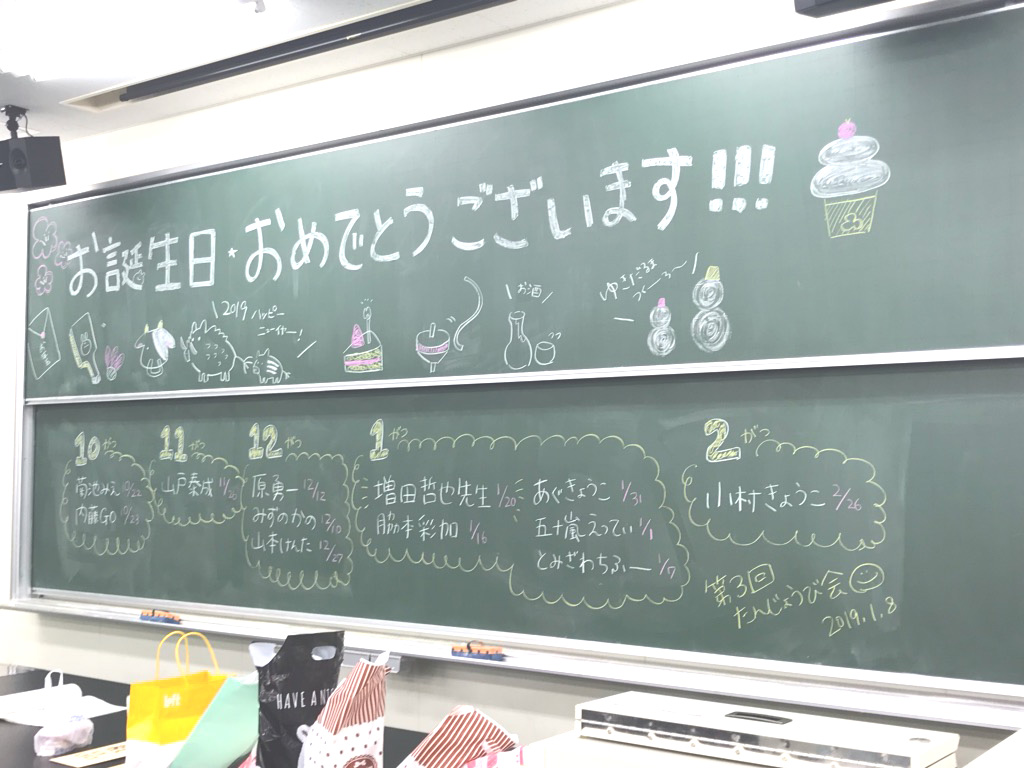 お誕生日*おめでとうございます!!!
2019 ハッピー
ニューイヤー!
お酒
ゆきだるま
10がつ
菊池みえ 10/22
内藤GO 10/23
11がつ
山戸泰成
12がつ
原勇一 12/12
みずのかの 12/10
山本けんた 12/27
1がつ
増田哲也先生 1/20
脇本彩加 1/16
あくぎょうこ 1/31
五十嵐えってい 1/1
とみざわちふー 1/7
2がつ
小村きょうこ 2/26
第3回
たんじょうび会
2019.1.8
HAVE A NI